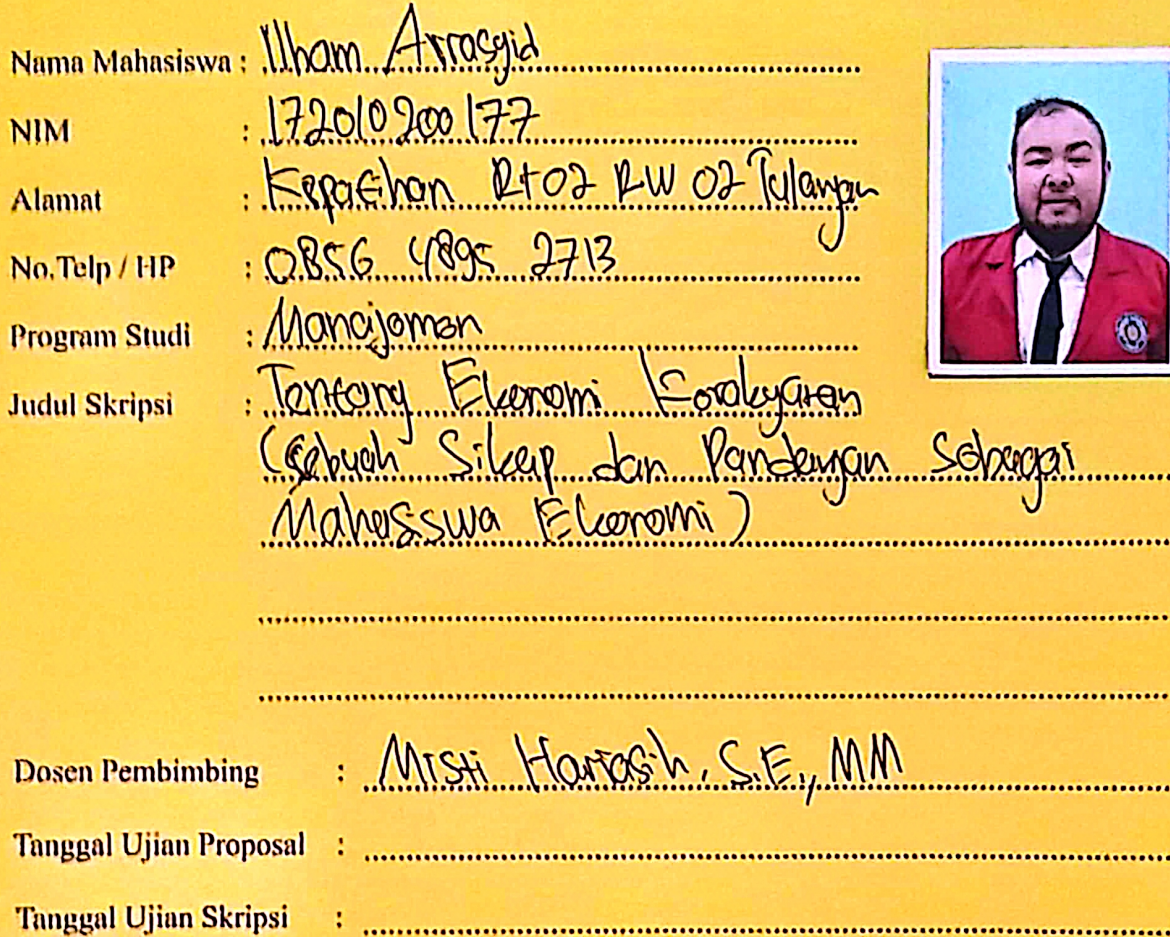 Nama Mahasiswa : Ilham Arrasyid
NIM : 172010200177
Alamat : Kepatihan Rt 02 RW 02 Tulangan
No.Telp / HP : 0856 4895 2713
Program Studi : Manajemen
Judul Skripsi : Tentang Ekonomi Kerakyatan
(Sebuah Sikap dan Pandangan Sebagai
Mahasiswa Ekonomi)
Dosen Pembimbing : Misti Hariasih, S.E., MM
Tanggal Ujian Proposal :
Tanggal Ujian Skripsi :